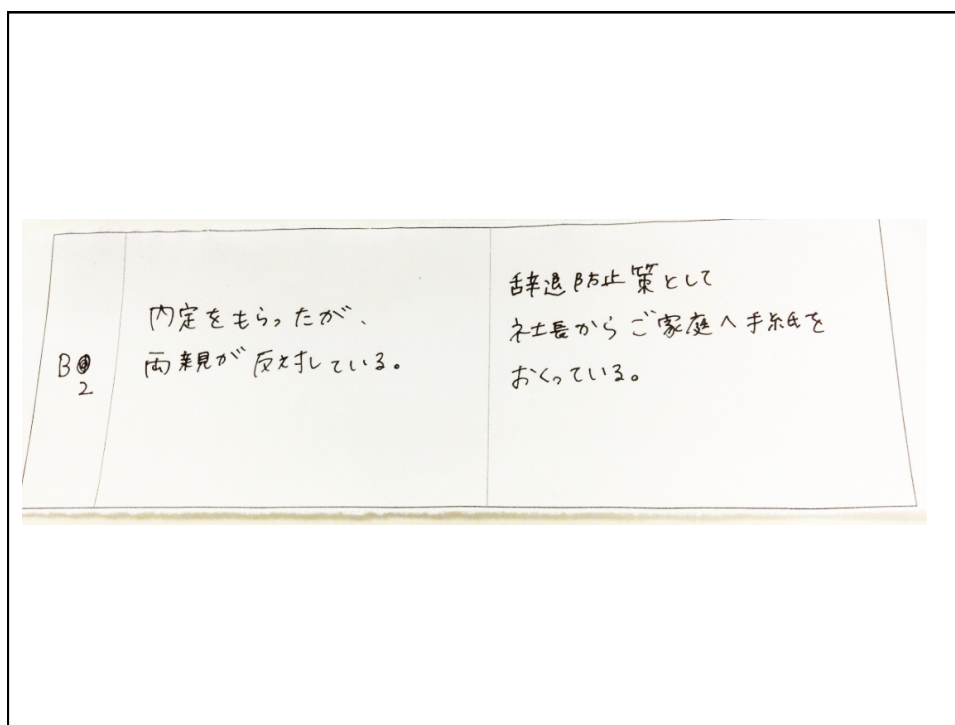 B
2
内定をもらったが、
両親が反対している。
辞退防止策として
社長からご家庭へ手紙を
おくっている。